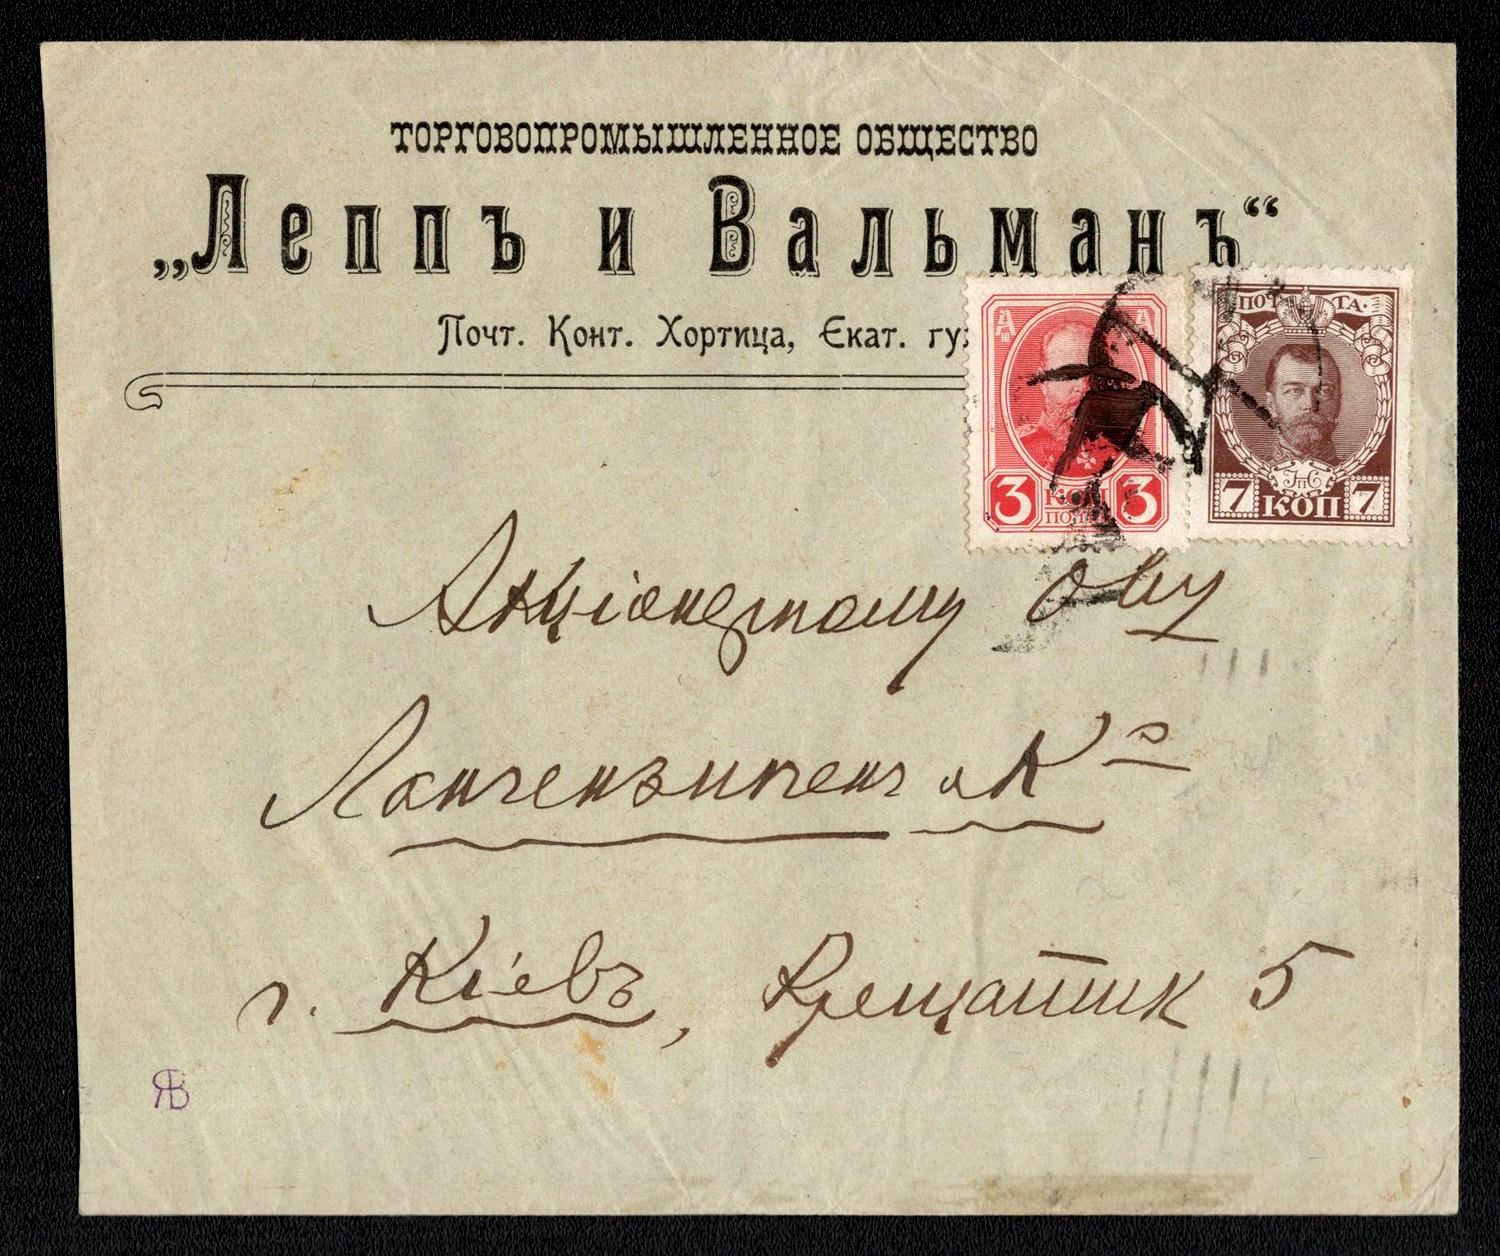 ТОРГОВОПРОМЫШЛЕННОЕ ОБЩЕСТВО
„Леппъ и Вальманъ“
Почт. Конт. Хортица, Екат. гу
ПОЧТА.
3 КОП 3
7 КОП 7
Акціонерному О-ву
Лангензипенъ и К-о
г. Кіевъ, Крещатик 5
ЯВ